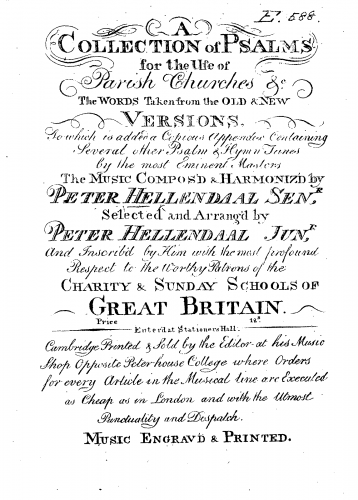 E. 588.
A
COLLECTION of PSALMS
for the Use of
Parish Churches &c.
The WORDS Taken from the OLD & NEW
VERSIONS,
To which is added a Copious Appendix Containing
Several other Psalm & Hymn Tunes
by the most Eminent Masters
The MUSIC COMPOS'D & HARMONIZ'D by
PETER HELLENDAAL SENr.
Selected and Arrang'd by
PETER HELLENDAAL JUNr.
And Inscrib'd by Him with the most profound
Respect to the Worthy Patrons of the
CHARITY & SUNDAY SCHOOLS OF
GREAT BRITAIN.
Price
Enter'd at Stationers Hall.
Cambridge Printed & Sold by the Editor at his Music
Shop Opposite Peterhouse College where Orders
for every Article in the Musical line are Executed
as Cheap as in London and with the Utmost
Punctuality and Dispatch.
MUSIC ENGRAV'D & PRINTED.